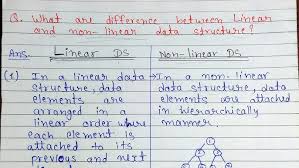 Q. What are difference between Linear
and non-linear data structure?
Ans. Linear DS Non-linear DS
(1) In a linear data → In a non-linear
structure, data data structure, data
elements are elements are attached
arranged in a in hierarchically
linear order where manner.
each element is
attached to its
previous and next